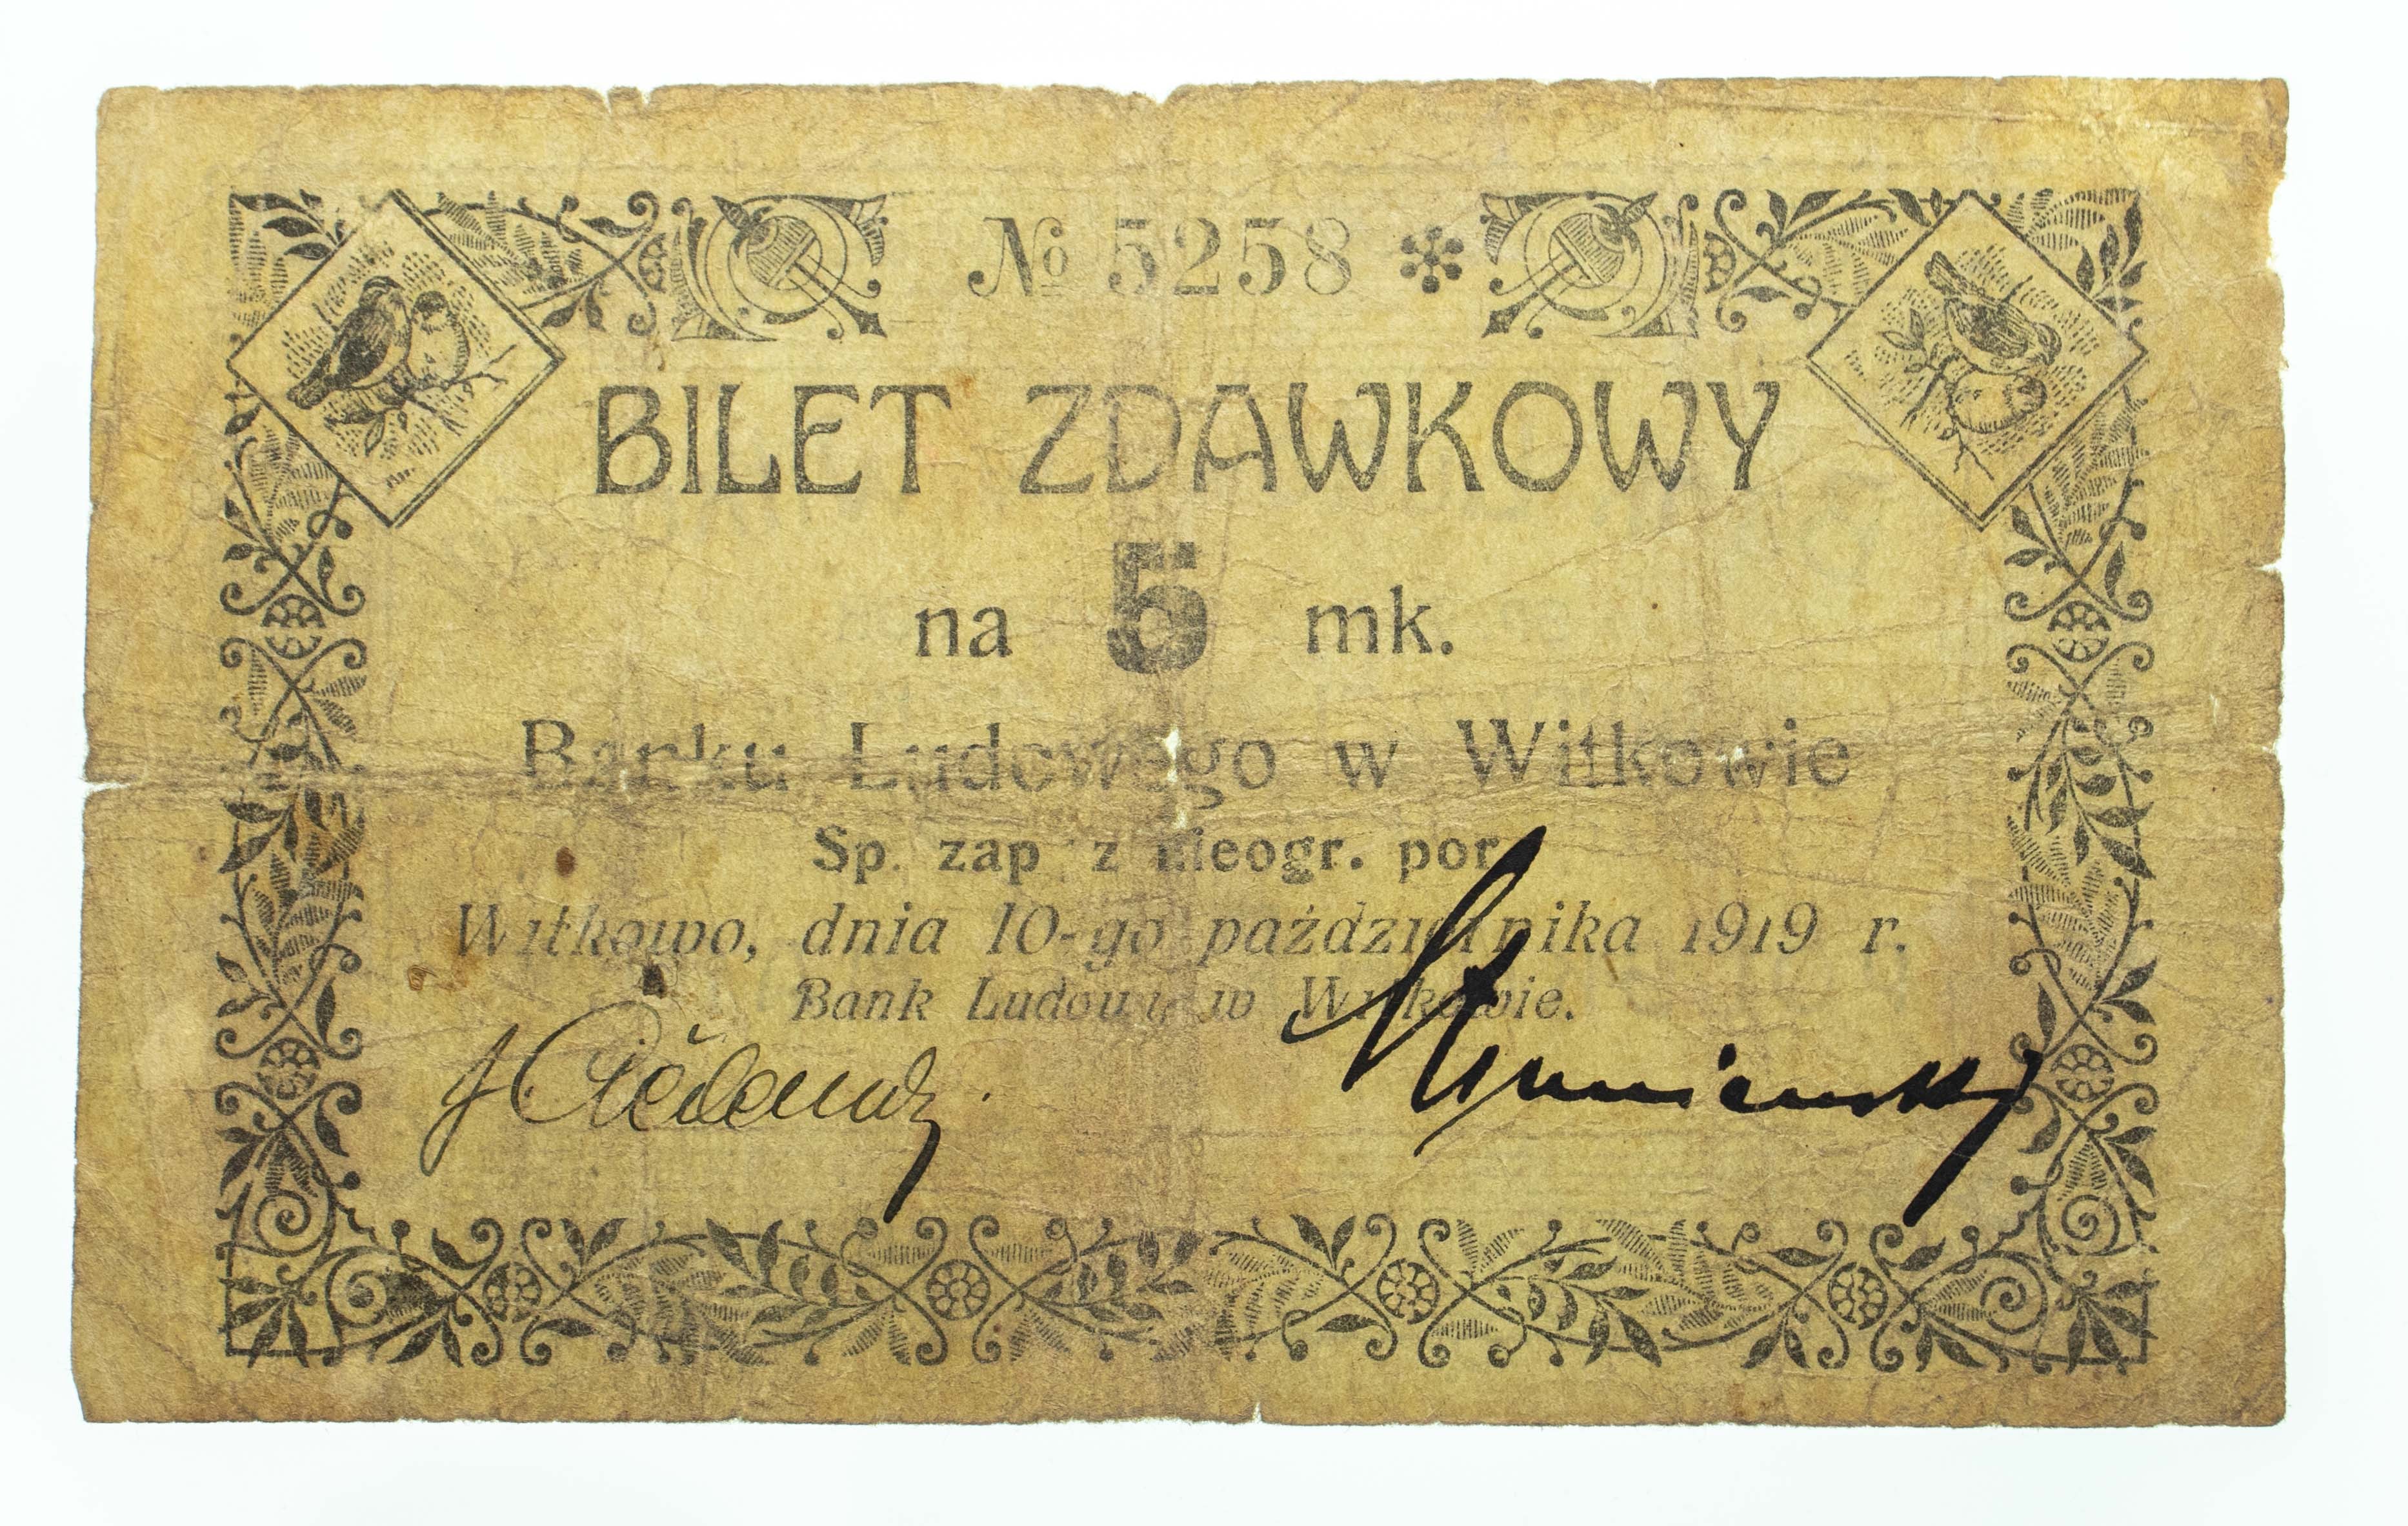 № 5258
BILET ZDAWKOWY
na 5 mk.
Banku Ludowego w Witkowie
Sp. zap. z nieogr. por.
Witkowo, dnia 10-go października 1919 r.
Bank Ludowy w Witkowie.